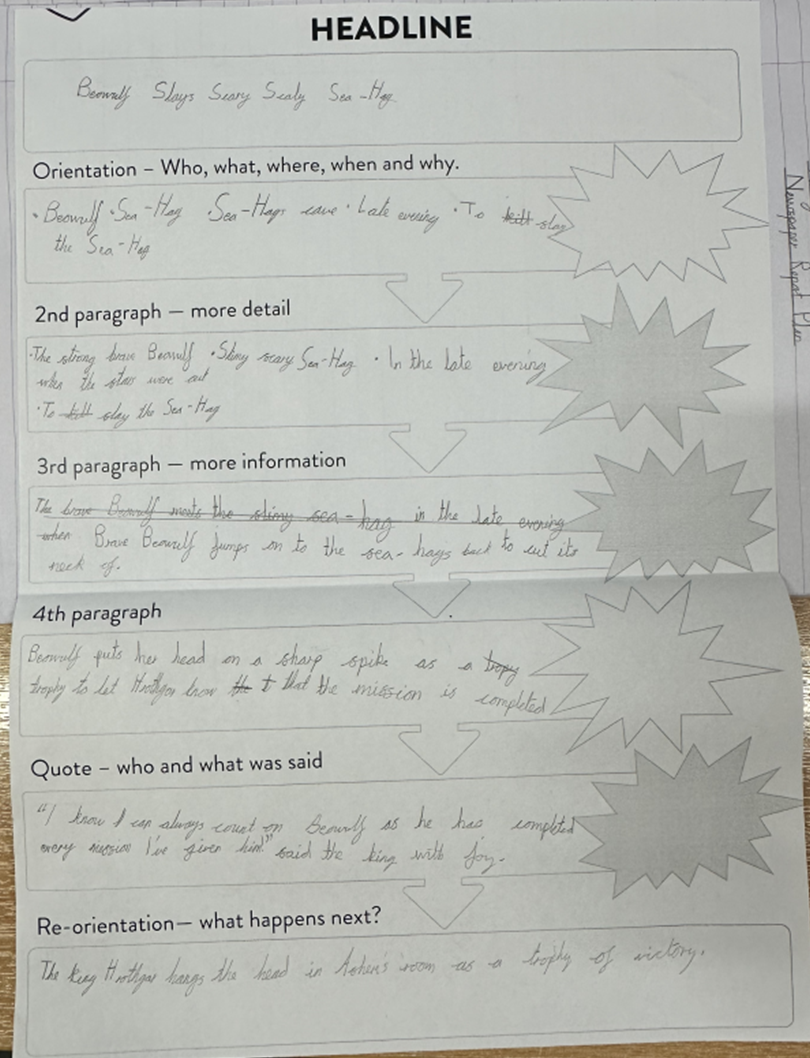 HEADLINE
Beowulf Slays Scary Scaly Sea-Hag
Orientation – Who, what, where, when and why.
·Beowulf ·Sea-Hag ·Sea-Hags cave ·Late evening ·To kill slay
the Sea-Hag
2nd paragraph — more detail
·The strong brave Beowulf ·Slimy scary Sea-Hag ·In the late evening
when the stars were out
·To kill slay the Sea-Hag
3rd paragraph — more information
The brave Beowulf meets the slimy sea-hag in the late evening
when Brave Beowulf jumps on to the sea-hags back to cut its
neck of.
4th paragraph
Beowulf puts her head on a sharp spike as a tropy
trophy to let Hrothgar know the t that the mission is completed
Quote – who and what was said
"I know I can always count on Beowulf as he has completed
every mission I've given him!" said the king with joy.
Re-orientation— what happens next?
The king Hrothgar hangs the head in room as a trophy of victory.
Newspaper Report Plan